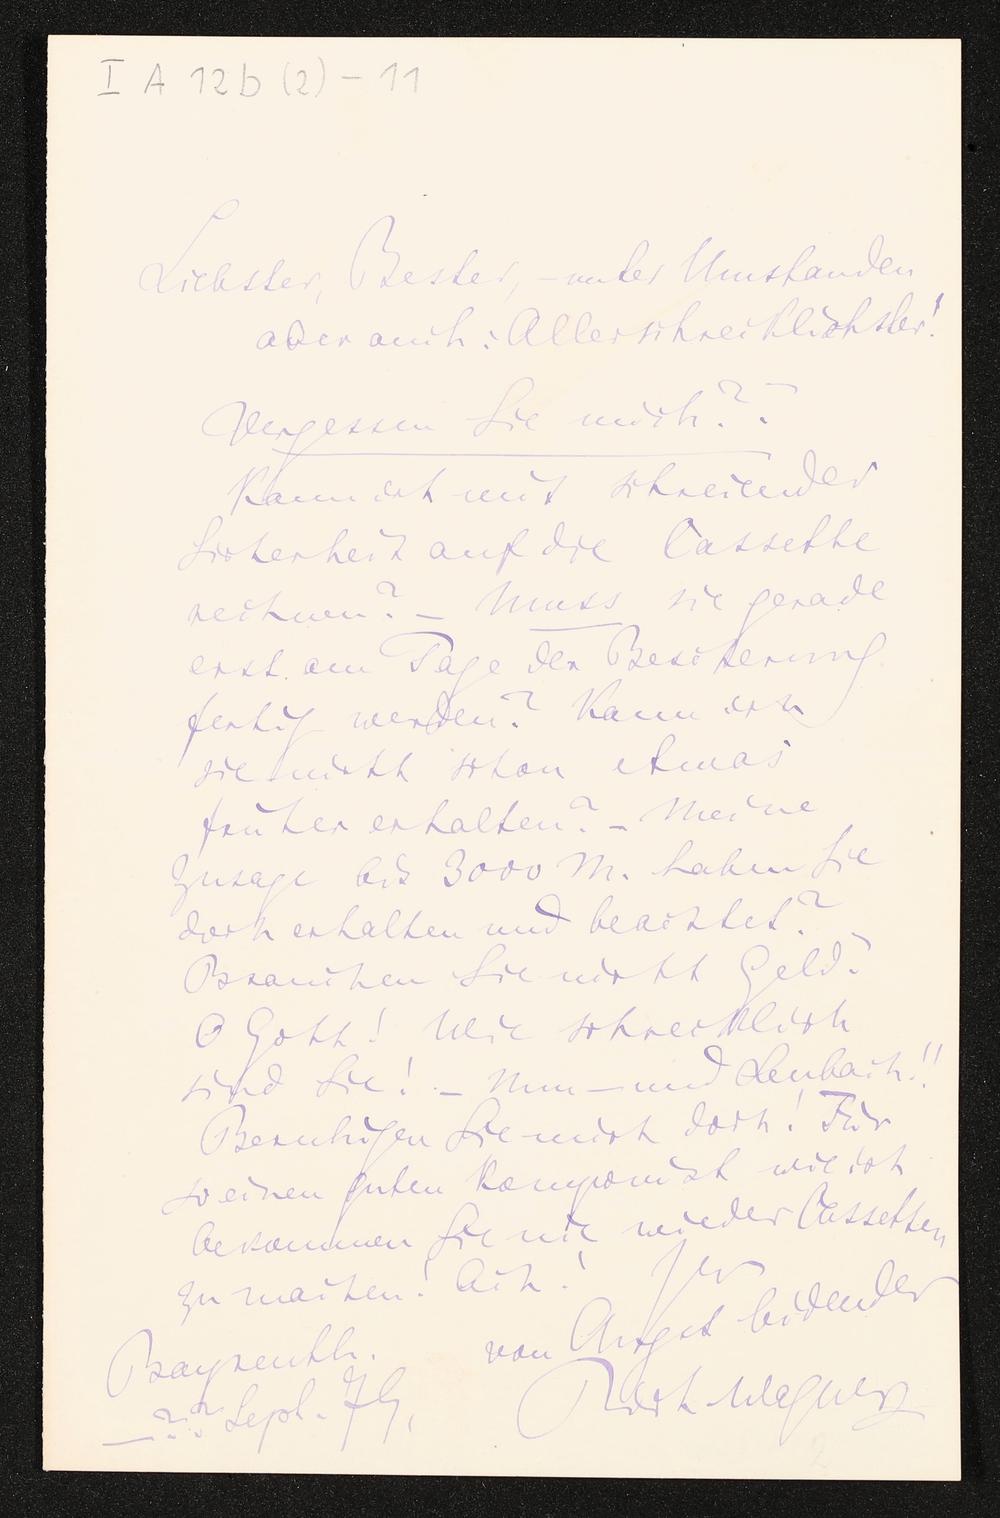 I A 12b (2) - 11
Liebster, Bester, – unter Umständen
aber auch: Allerschrecklichster!
Vergessen Sie mich??
Kann ich mit schreiender
Sicherheit auf die Cassette
rechnen? – Muss sie gerade
erst am Tage der Bescherung
fertig werden? Kann ich
sie nicht schon etwas
früher erhalten? – Meine
Zusage bis 3000 M. haben Sie
doch erhalten und beachtet?
Brauchen Sie nicht Geld?
O Gott! Wie schrecklich
sind Sie! – Nun – und Lenbach!!
Beruhigen Sie mich doch! Für
so einen guten Komponist wie ich
bekommen Sie nie wieder Cassetten
zu machen! Ach! Ihr
von Angst
Bayreuth.
Rich Wagner
?? Sept. 79.
2